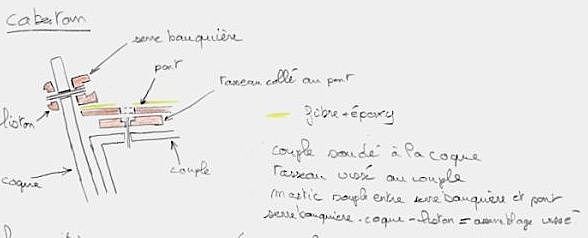 cabotan
serre bauquière
pont
tasseau collé au pont
liston
fibre + époxy
coque
couple
couple soudé à la coque
tasseau vissé au couple
mastic souple entre serre bauquière et pont
serre bauquière - coque - liston = assemblage vissé